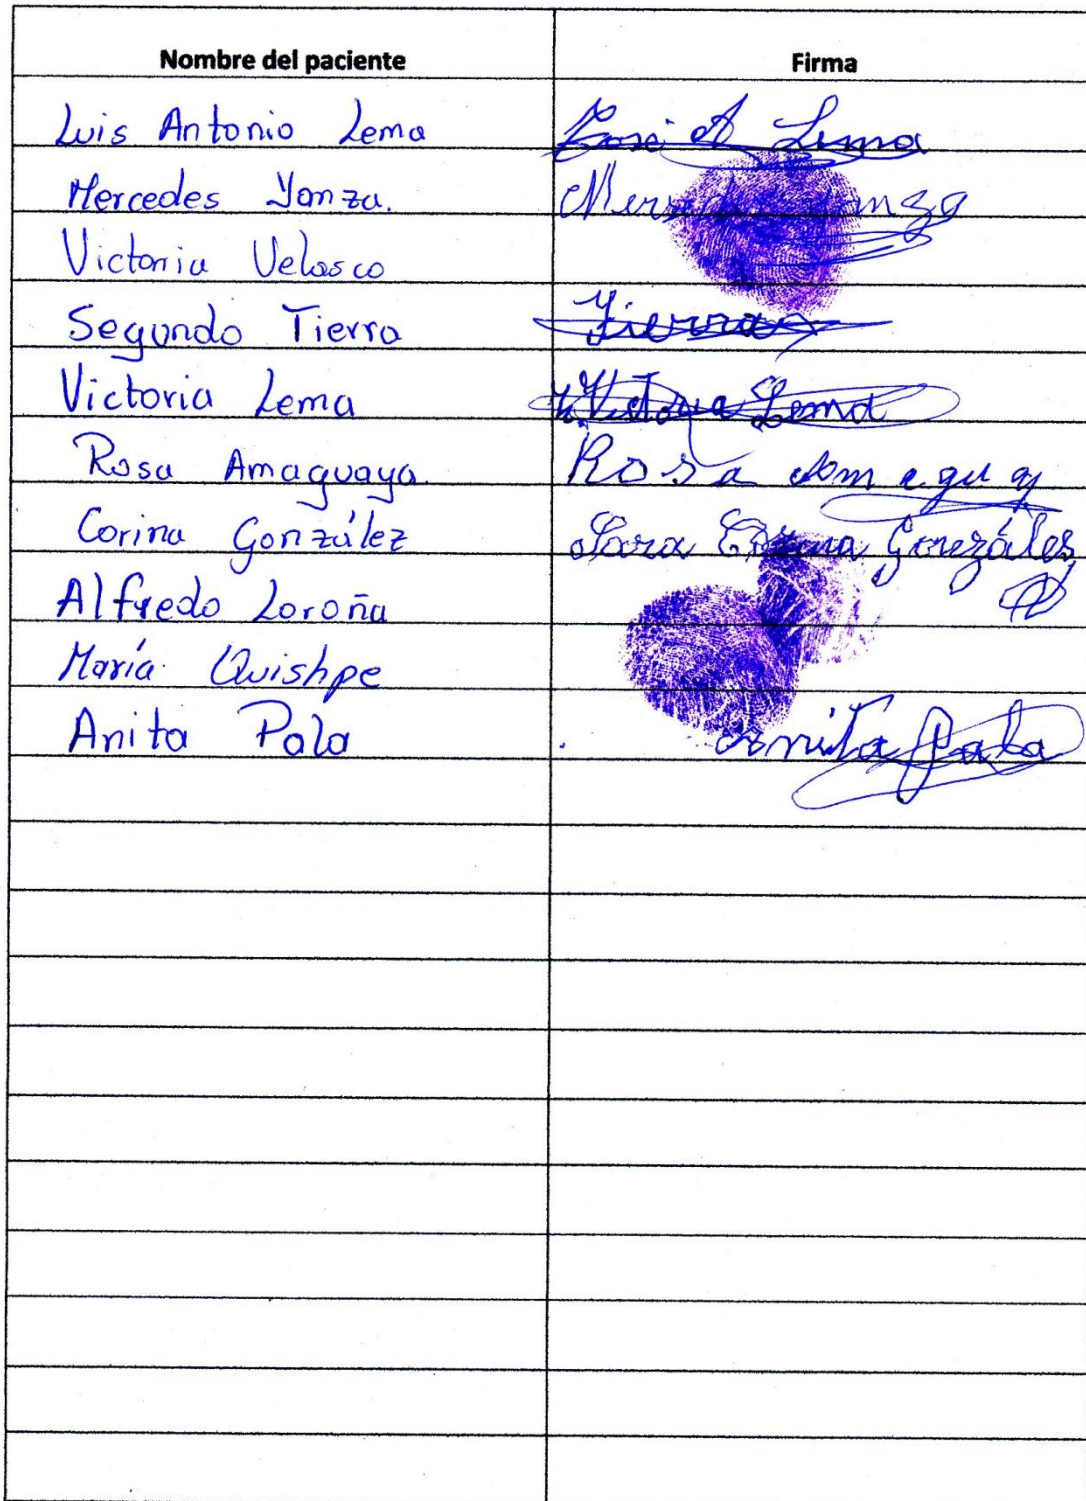 Nombre del paciente Firma
Luis Antonio Lema José A Lema
Mercedes Yanza. Mercedes Yanza
Victoria Velasco
Segundo Tierra Tierra
Victoria Lema Victoria Lema
Rosa Amaguaya. Rosa Amaguay
Corina González Sara Corina Gonezáles
Alfredo Loroña
María Quishpe
Anita Pala Anita Pala